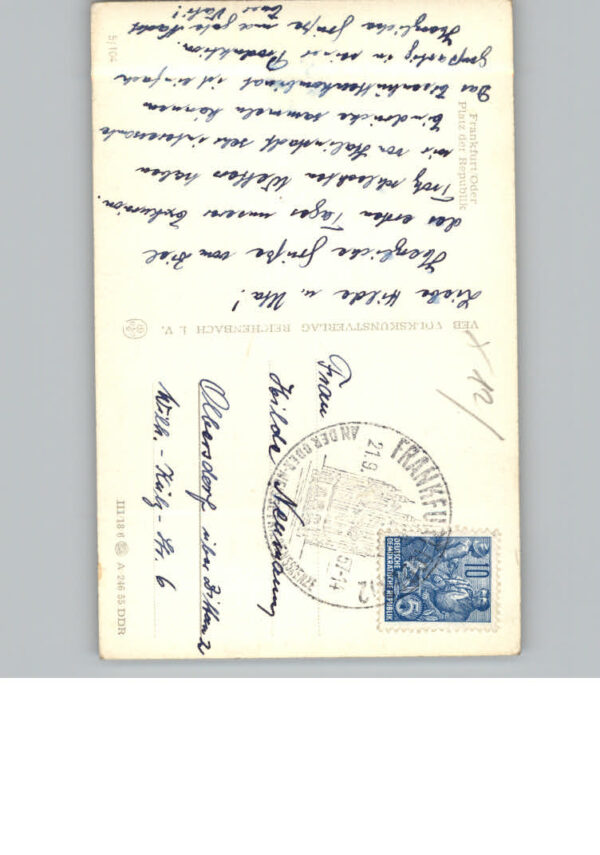 Frankfurt/Oder
Platz der Republik
Liebe Hilde u. Uta!
Herzliche Grüße vom Ziel
des ersten Tages unserer Exkursion.
Trotz schlechten Wetters haben
wir von Stalinstadt sehr interessante
Eindrücke sammeln können
Das Eisenhüttenkombinat ist einfach
großartig in seiner Produktion.
Herzliche Grüße und gute Nacht
Euer Vati!
5/104
VEB VOLKSKUNSTVERLAG REICHENBACH I. V.
Frau
Hilde Neumann
Olbersdorf über Zittau 2
Wilh.-Külz-Str. 6
III/18 6 A 246 55 DDR
FRANKFURT
AN DER ODER-NEISSE
21.9.57-14
10
DEUTSCHE
DEMOKRATISCHE REPUBLIK